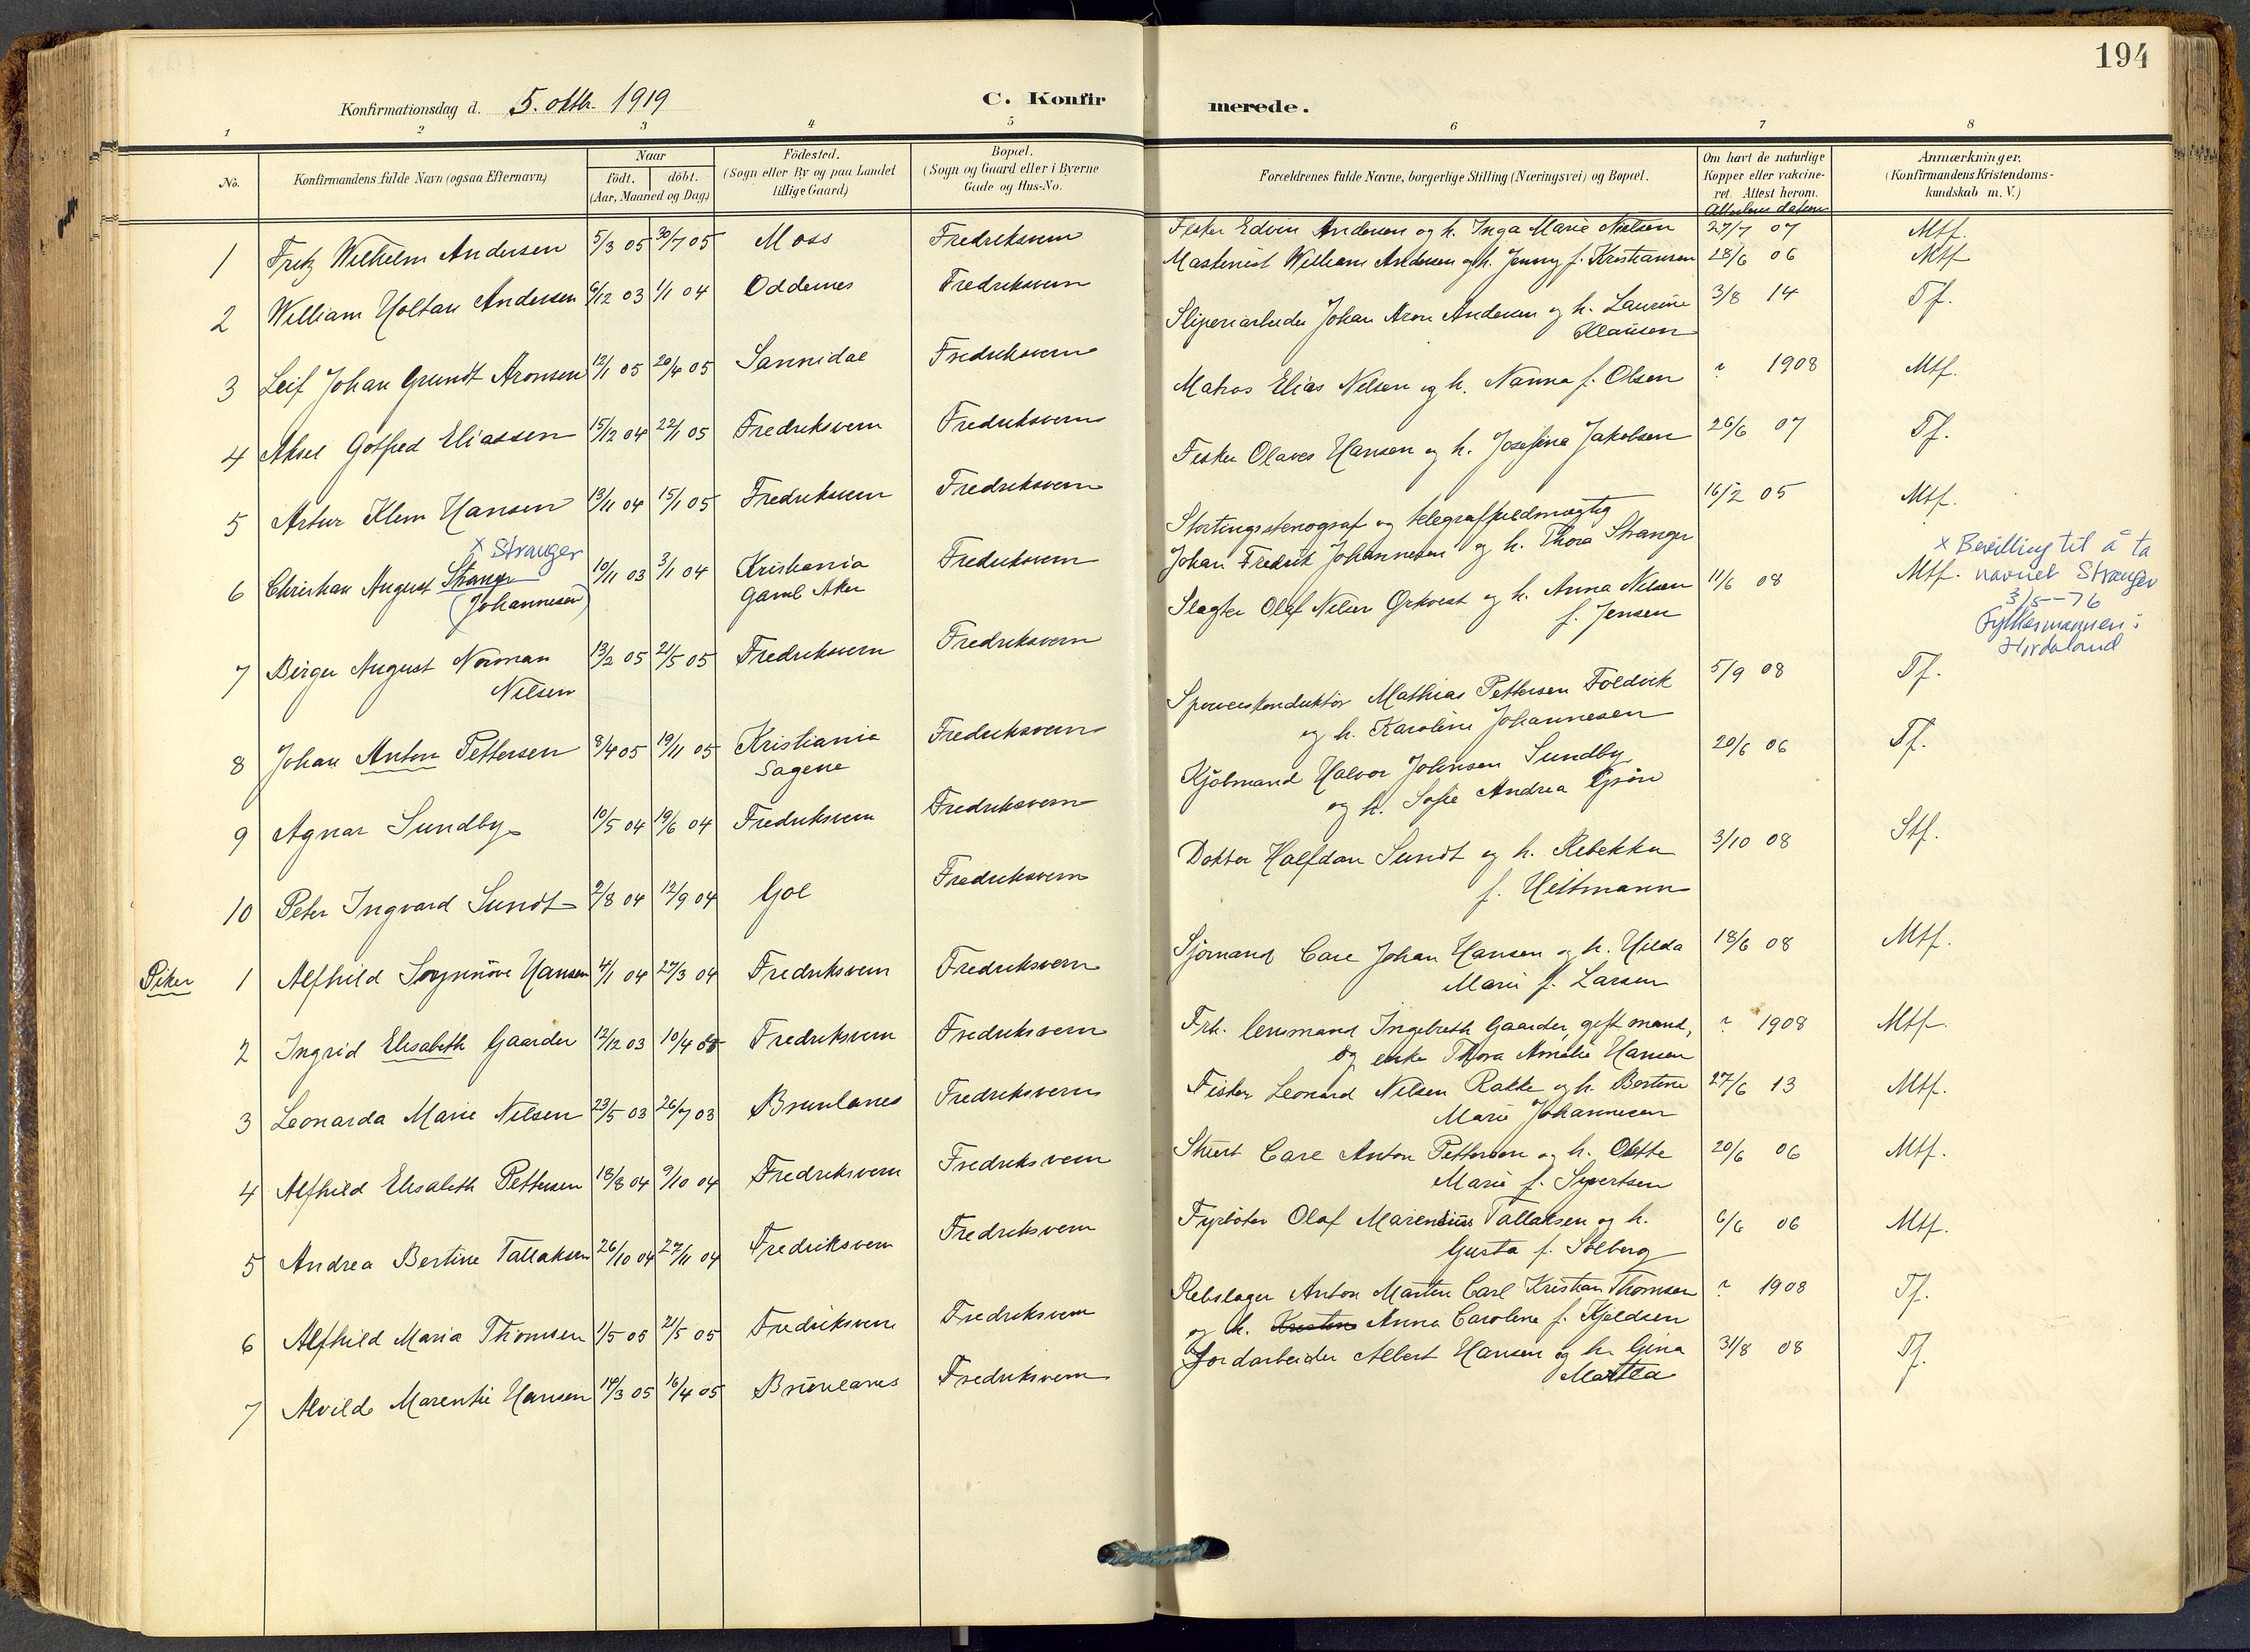 194
Konfirmationsdag d. 5. oktb. 1919
C. Konfirmerede.
1 2 3 4 5 6 7 8
No.
Konfirmandens fulde Navn (ogsaa Efternavn)
Naar
födt. döbt.
(Aar, Maaned og Dag)
Födested.
(Sogn eller By og paa Landet
tillige Gaard)
Bopæl.
(Sogn og Gaard eller i Byerne
Gade og Hus-No.
Forældrenes fulde Navne, borgerlige Stilling (Næringsvei) og Bopæl.
Om havt de naturlige
Kopper eller vakcine-
ret. Attest herom.
Attestens datum
Anmærkninger.
(Konfirmandens Kristendoms-
kundskab m. V.)
1 Fritz Wilhelm Andersen 5/3 05 30/7 05 Moss Fredriksvern Fisker Edvin Andersen og h. Inga Marie Nielsen 27/7 07 Mtf.
2 William Holtan Andersen 6/12 03 1/1 04 Oddernes Fredriksvern Maskinist William Andersen og h. Jenny f. Kristiansen 28/6 06 Mtf
3 Leif Johan Grundt Aronsen 12/1 05 20/4 05 Sannidal Fredriksvern Sliperiarbeider Johan Aron Andersen og h. Laurine
Klausen 3/8 14 Tf.
4 Aksel Gotfred Eliassen 15/12 04 22/1 05 Fredriksvern Fredriksvern Matros Elias Nilsen og h. Nanna f. Olsen ? 1908 Mtf.
5 Artur Klem Hansen 13/11 04 15/1 05 Fredriksvern Fredriksvern Fisker Olaves Hansen og h. Josefine Jakobsen 26/6 07 Tf.
x Stranger
6 Christian August Stranger
(Johannesen) 10/11 03 3/1 04 Kristiania
Gaml Aker Fredriksvern Stortingsstenograf og telegraffuldmægtig
Johan Fredrik Johannesen og h. Thora Stranger 16/2 05 Mtf.
x Bevilling til å ta
navnet Stranger
3/5-76
Fylkesmannen i
Hordaland
7 Birger August Norman
Nilsen 13/2 05 21/5 05 Fredriksvern Fredriksvern Slagter Olaf Nilsen Ørkvest og h. Anna Nilsen
f. Jensen 11/6 08 Mtf.
8 Johan Anton Pettersen 8/4 05 19/11 05 Kristiania
Sagene Fredriksvern Sporveiskonduktör Mathias Pettersen Foldvik
og h. Karoline Johannesen 5/9 08 Tf.
9 Agnar Sundby 10/5 04 19/6 04 Fredriksvern Fredriksvern Kjölmand Halvor Johnsen Sundby
og h. Sofie Andrea Grön 20/6 06 Tf.
10 Peter Ingvard Sundt 2/8 04 12/9 04 Gol Fredriksvern Doktor Halfdan Sundt og h. Rebekka
f. Heitmann 3/10 08 Stf.
Piker
1 Alfhild Synnöve Hansen 4/1 04 27/3 04 Fredriksvern Fredriksvern Sjömand Carl Johan Hansen og h. Hilda
Marie f. Larsen 18/6 08 Mtf.
2 Ingrid Elisabeth Gaarder 12/12 03 10/4 Fredriksvern Fredriksvern Frh. lensmand Ingebreth Gaarder, gift mand,
og enke Thora Amalie Hansen ? 1908 Mtf.
3 Leonarda Marie Nilsen 23/5 03 26/7 03 Brunlanes Fredriksvern Fisker Leonard Nilsen Rakke og h. Bertine
Marie Johannesen 27/6 13 Mtf.
4 Alfhild Elisabeth Pettersen 18/8 04 9/10 04 Fredriksvern Fredriksvern Stuert Carl Anton Pettersen og h. Olette
Marie f. Syvertsen 20/6 06 Mtf.
5 Andrea Bertine Tallaksen 26/10 04 27/11 04 Fredriksvern Fredriksvern Fyrböter Olaf Marensius Tallaksen og h.
Gusta f. Solberg 6/6 06 Mtf.
6 Alfhild Maria Thomsen 1/5 05 21/5 05 Fredriksvern Fredriksvern Rebslager Anton Martin Carl Kristian Thomsen
og h. Kristine Anna Caroline f. Kjeldsen ? 1908 Tf.
7 Alvilde Marentie Hansen 14/3 05 16/4 05 Brunlanes Fredriksvern Jordarbeider Albert Hansen og h. Gina
Mattea 31/8 08 Tf.